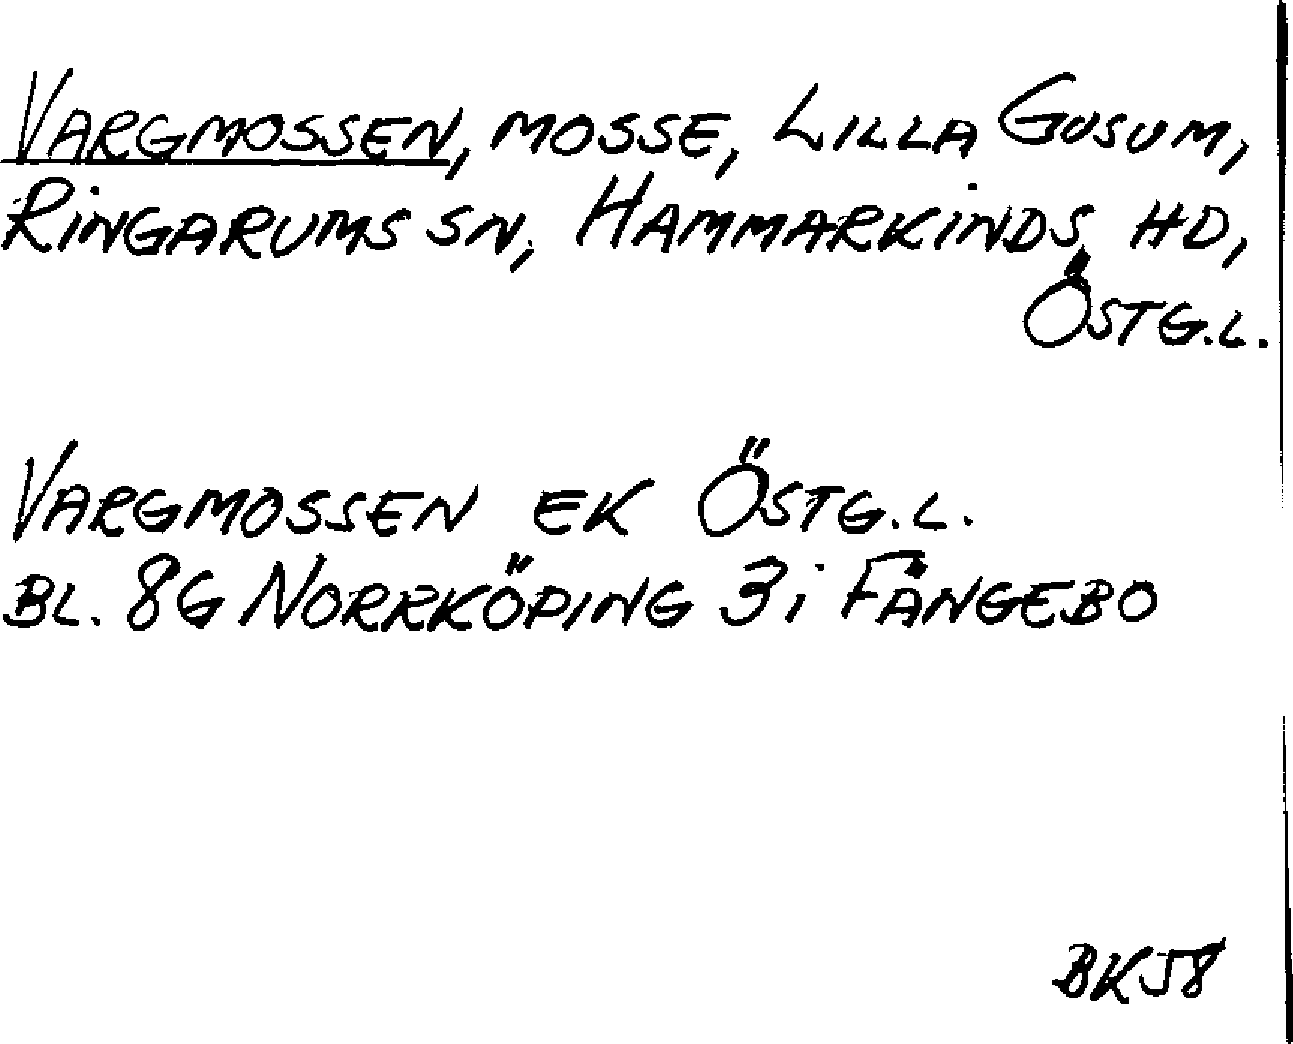 VARGMOSSEN, MOSSE, LILLA GUSUM,
RINGARUMS SN, HAMMARKINDS HD,
ÖSTG.L.
VARGMOSSEN EK ÖSTG.L.
BL. 8G NORRKÖPING 3i FÅNGEBO
BK58